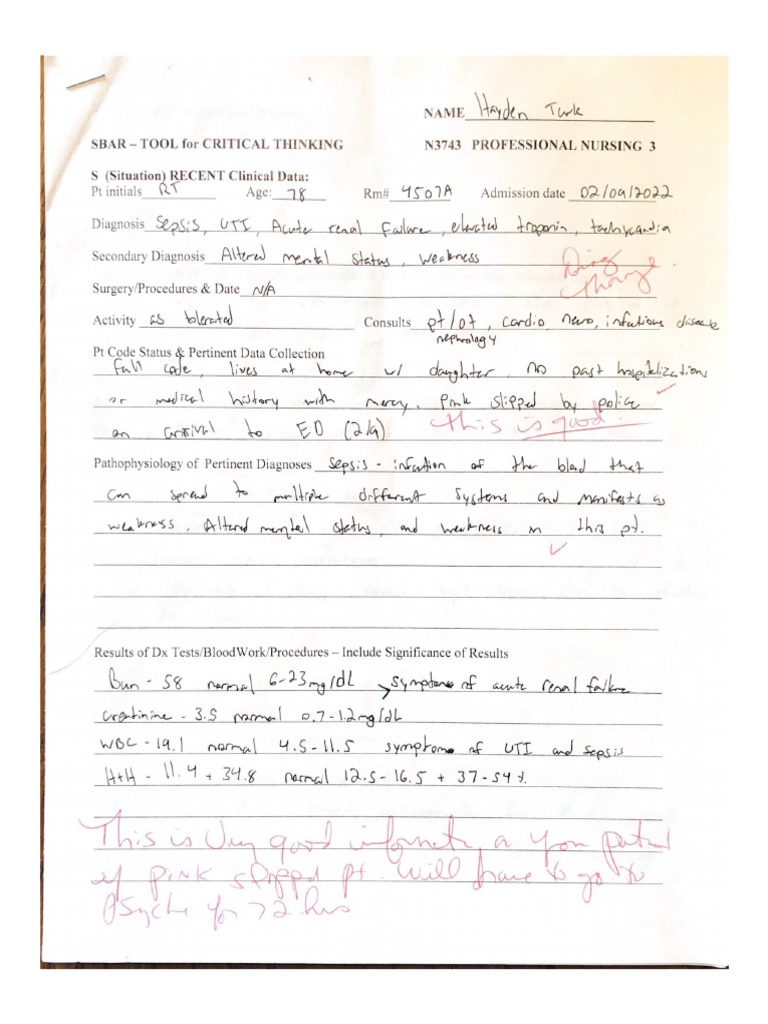 NAME Hayden Turk
SBAR – TOOL for CRITICAL THINKING N3743 PROFESSIONAL NURSING 3
S (Situation) RECENT Clinical Data:
Pt initials RT Age: 78 Rm# 4507A Admission date 02/09/2022
Diagnosis Sepsis, UTI, Acute renal failure, elevated troponin, tachycardia
Secondary Diagnosis Altered mental status, weakness
Surgery/Procedures & Date N/A
Activity as tolerated Consults pt/ot, cardio, neuro, infectious disease
nephrology
Pt Code Status & Pertinent Data Collection
Full code, lives at home w/ daughter, no past hospitalizations
or medical history with mercy. Pink slipped by police
on arrival to ED (2/9)
this is good.
Pathophysiology of Pertinent Diagnoses Sepsis - infection of the blood that
can spread to multiple different systems and manifests as
weakness, Altered mental status, and weakness in this pt.
Results of Dx Tests/BloodWork/Procedures – Include Significance of Results
Bun - 58 normal 6-23mg/dL symptoms of acute renal failure
creatinine - 3.5 normal 0.7-1.2mg/dL
WBC - 19.1 normal 4.5-11.5 symptoms of UTI and sepsis
H+H - 11.4 + 34.8 normal 12.5-16.5 + 37-54%
This is very good on your
pink slipped pt. will have to go to
Psyche for 72 hrs